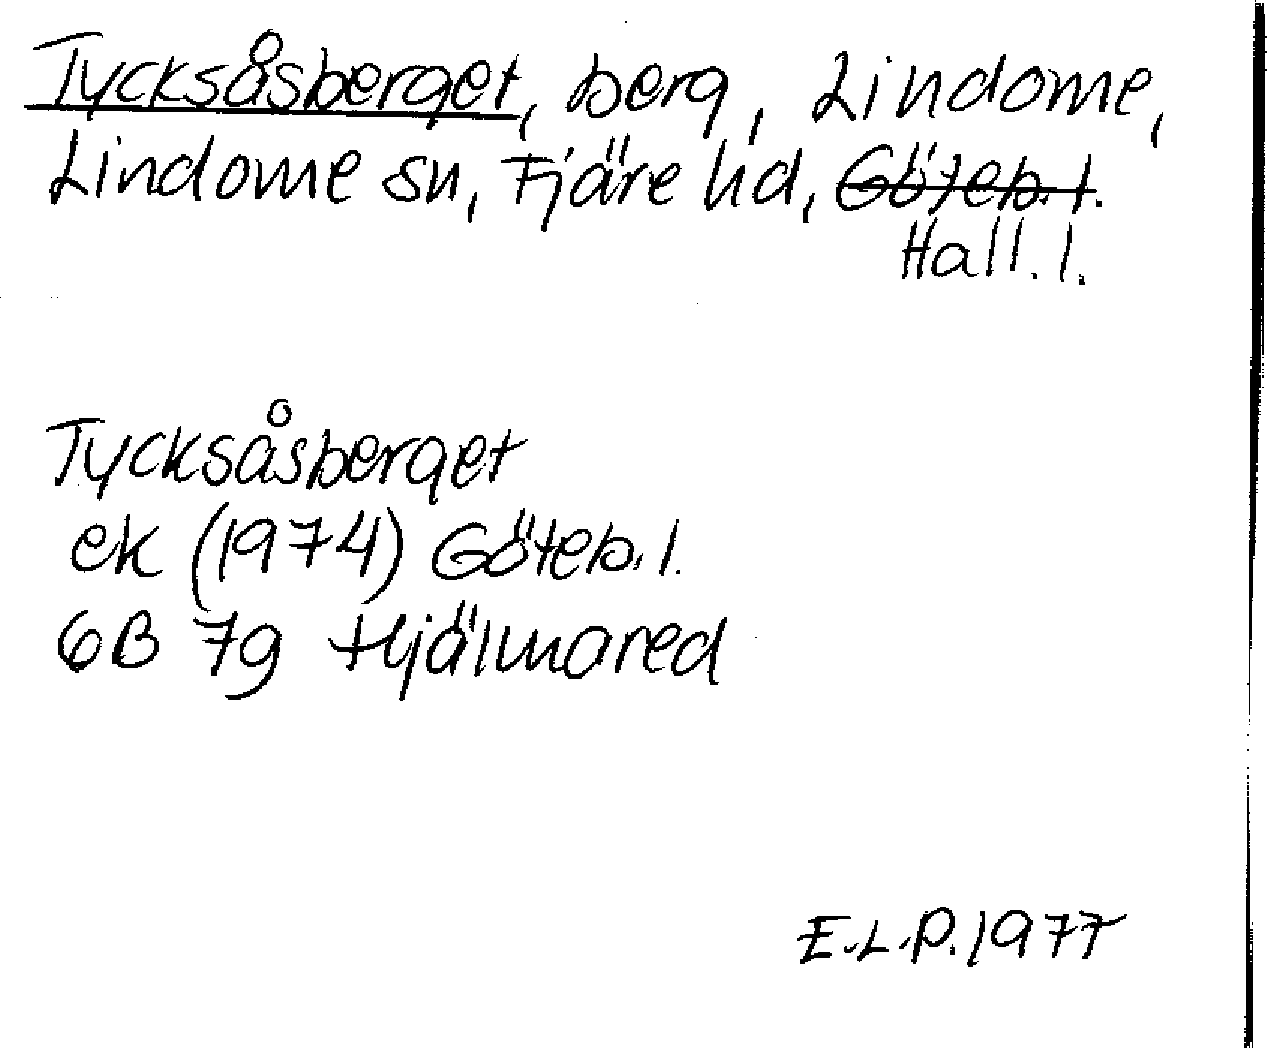 Tycksåsberget, berg, Lindome,
Lindome sn, Fjäre hd, Göteb. l.
Hall. l.
Tycksåsberget
ek (1974) Göteb. l.
6B 7g Hjälmared
E.L.P. 1977